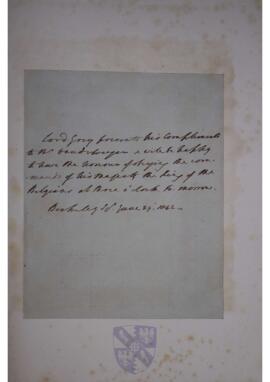 Lord Grey presents his Compliments
to Mr Vandeweyer & will be happy
to have the honour of obeying the com-
mands of his Majesty the King of the
Belgians at three o'clock to morrow.
Berkeley Sq June 29. 1842.